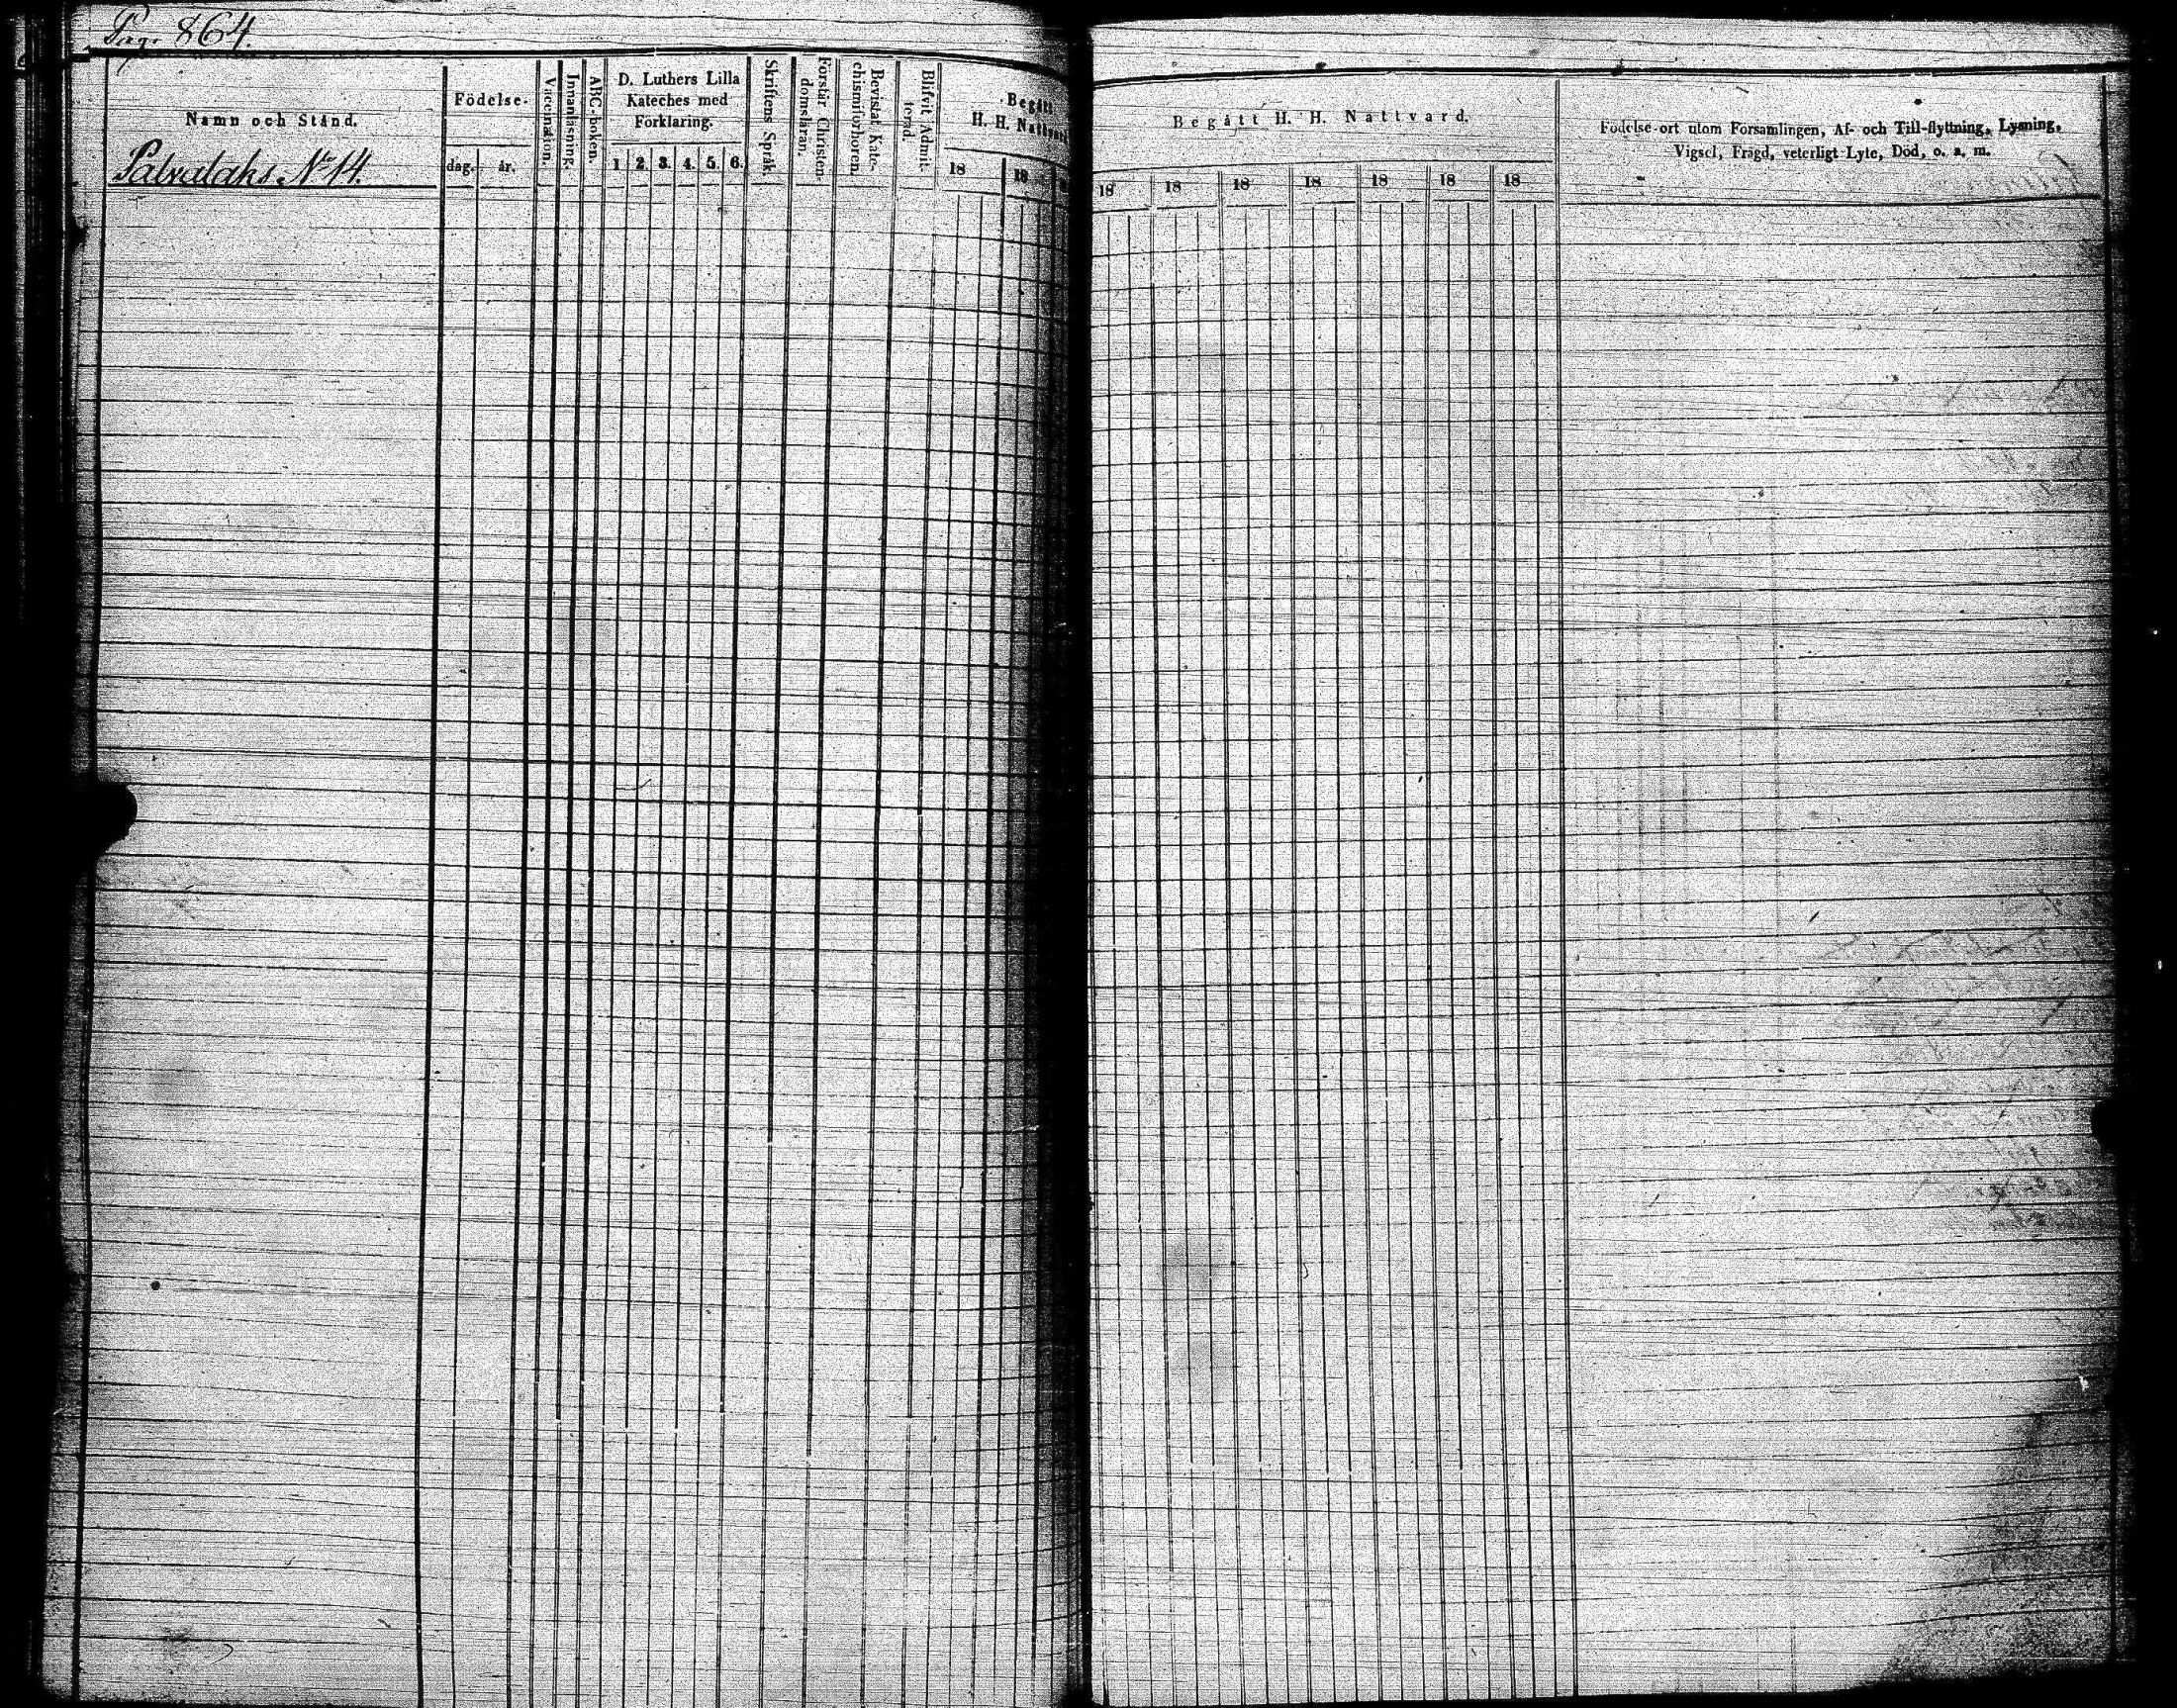 Pag. 864.
Namn och Stånd.
Palvalahs No 14.
Födelse-
dag.
år.
Vaccination.
Innanläsning.
ABC-boken.
D. Luthers Lilla
Kateches med
Förklaring.
1 2. 3. 4. 5. 6.
Skriftens Språk.
Förstår Christen-
domsläran.
Bevistat Kate-
chismiförhören.
Blifvit Admit-
terad.
Begått
H. H. Nattvard
18 18
Begått H. H. Nattvard.
18 18 18 18 18 18 18
Födelse-ort utom Församlingen, Af- och Till-flyttning, Lysning,
Vigsel, Frägd, veterligt Lyte, Död, o. s. m.